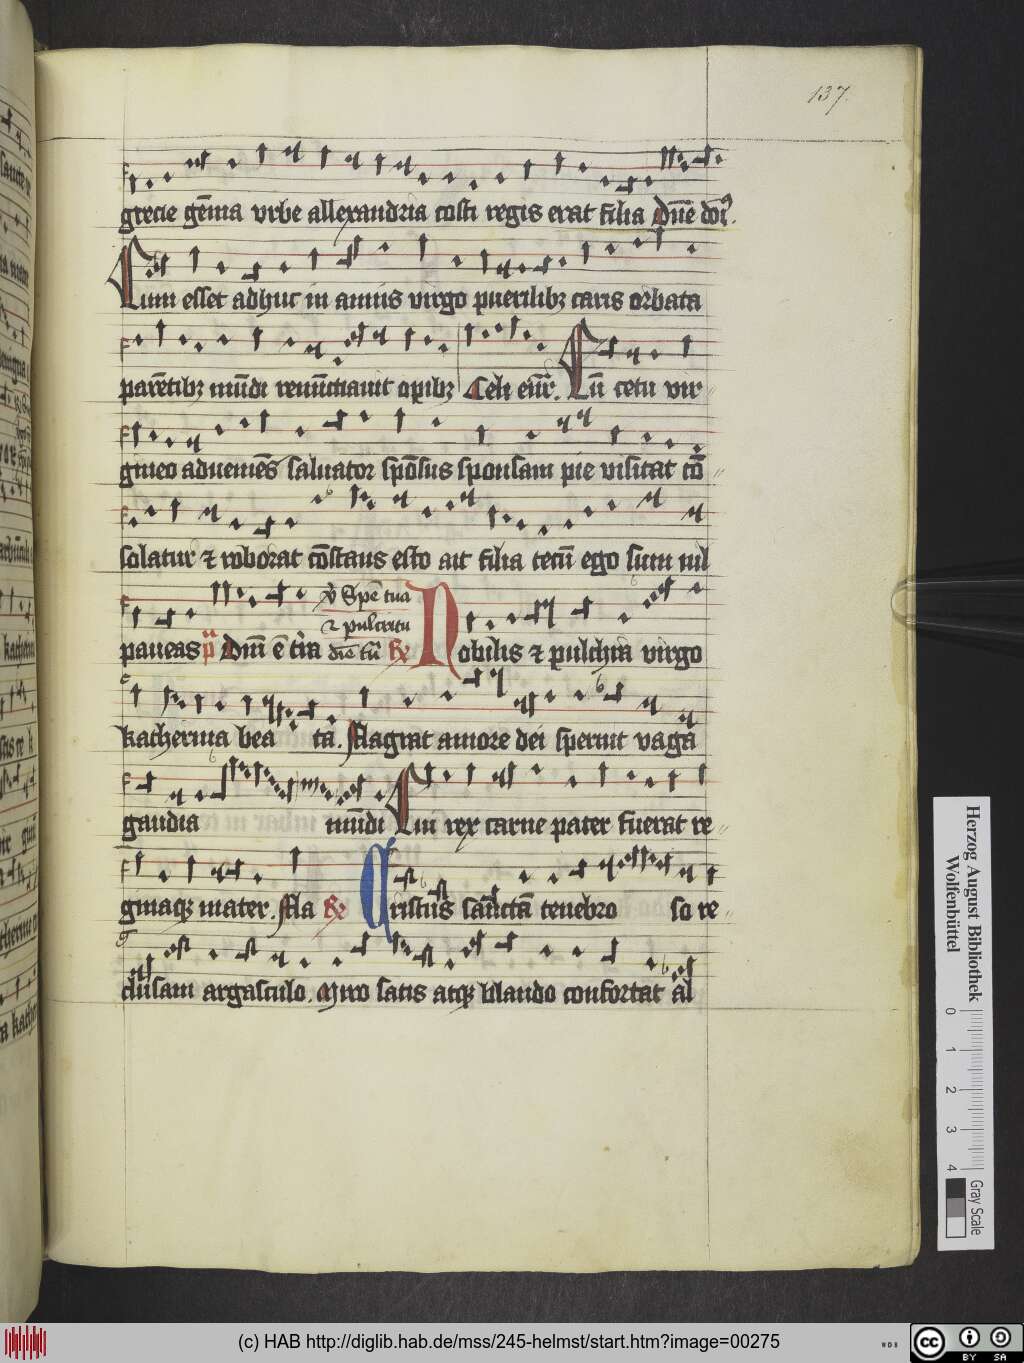 137.
grecie gēma vrbe allexandria costi regis erat filia Dn̄e dn̄r.
Cum esset adhuc in annis virgo puerilibꝫ caris orbata
parētibꝫ mūdi renūctiauit opibꝫ Celi enr̄. Cū cetu vir
gineo adueniēs saluator spōsus sponsam pie visitat cō
solatur ⁊ roborat cōstans esto ait filia tecū ego sum nil
paueas p̄ Dnī ē tr̄ra
Spē tua
⁊ pulcritu
diē tu̅
Nobilis ⁊ pulchra virgo
katherina bea ta. Flagrat amore dei spernit vaga
gaudia mūdi Cui rex carne pater fuerat re
ginaqꝫ mater. Fla Cristus sāctā tenebro so re
clusam argasculo. Miro satis atqꝫ blando confortat al
Herzog August Bibliothek
Wolfenbüttel
0 1 2 3 4
Gray Scale
(c) HAB http://diglib.hab.de/mss/245-helmst/start.htm?image=00275
WDB
cc BY SA